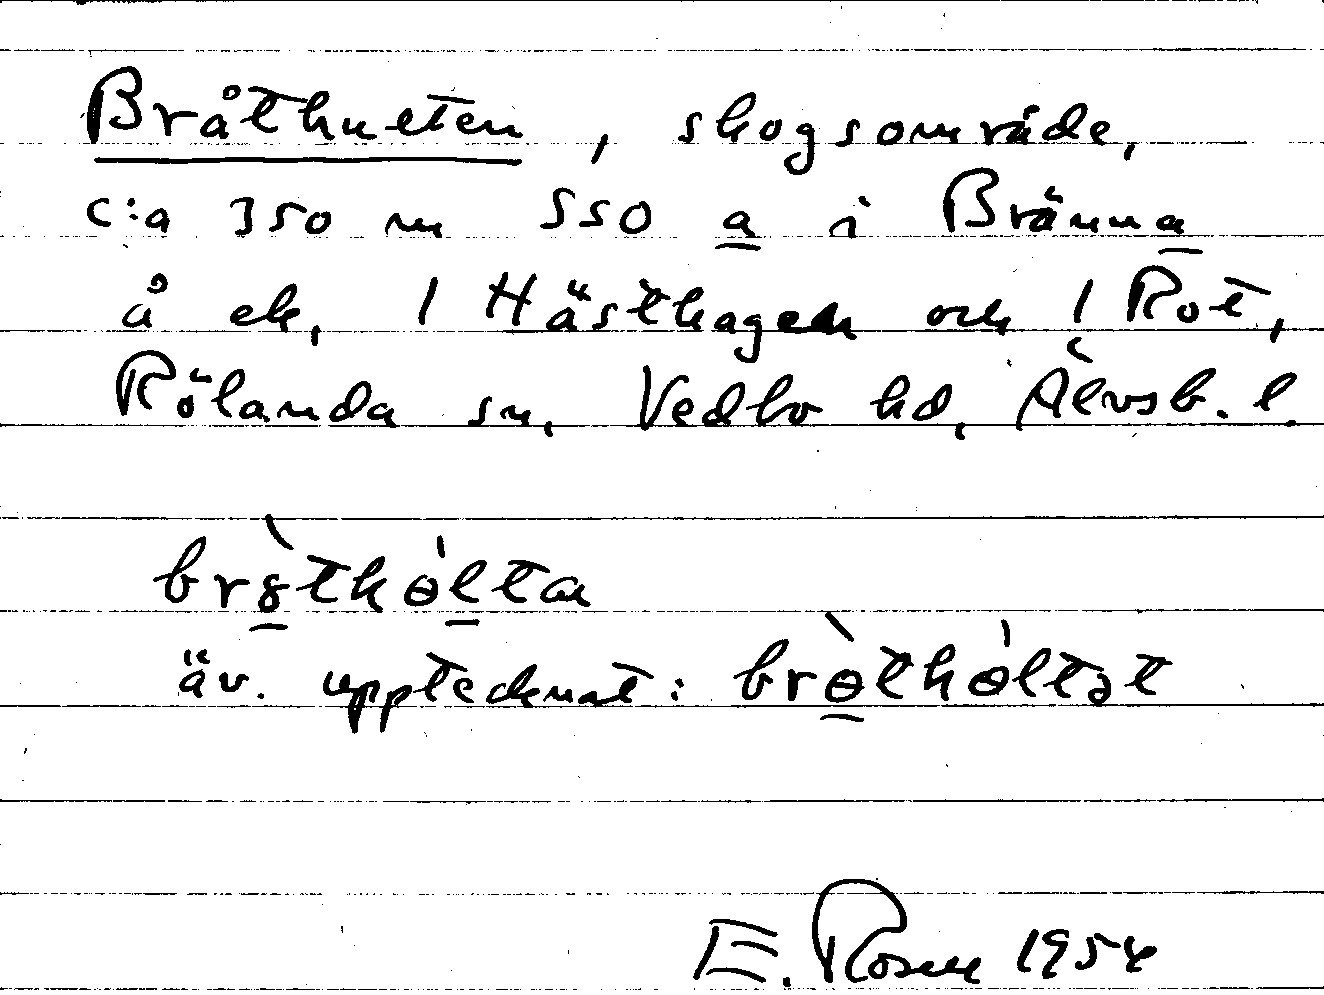 Bråthulten, skogsområde,
c:a 350 m SSO a i Bränna
å ek, 1 Hästhagen och 1 Rot,
Rölanda sn, Vedbo hd, Älvsb. l.
äv. upptecknat: brɵ̀thɵ́ltət
E. Rosne 1954